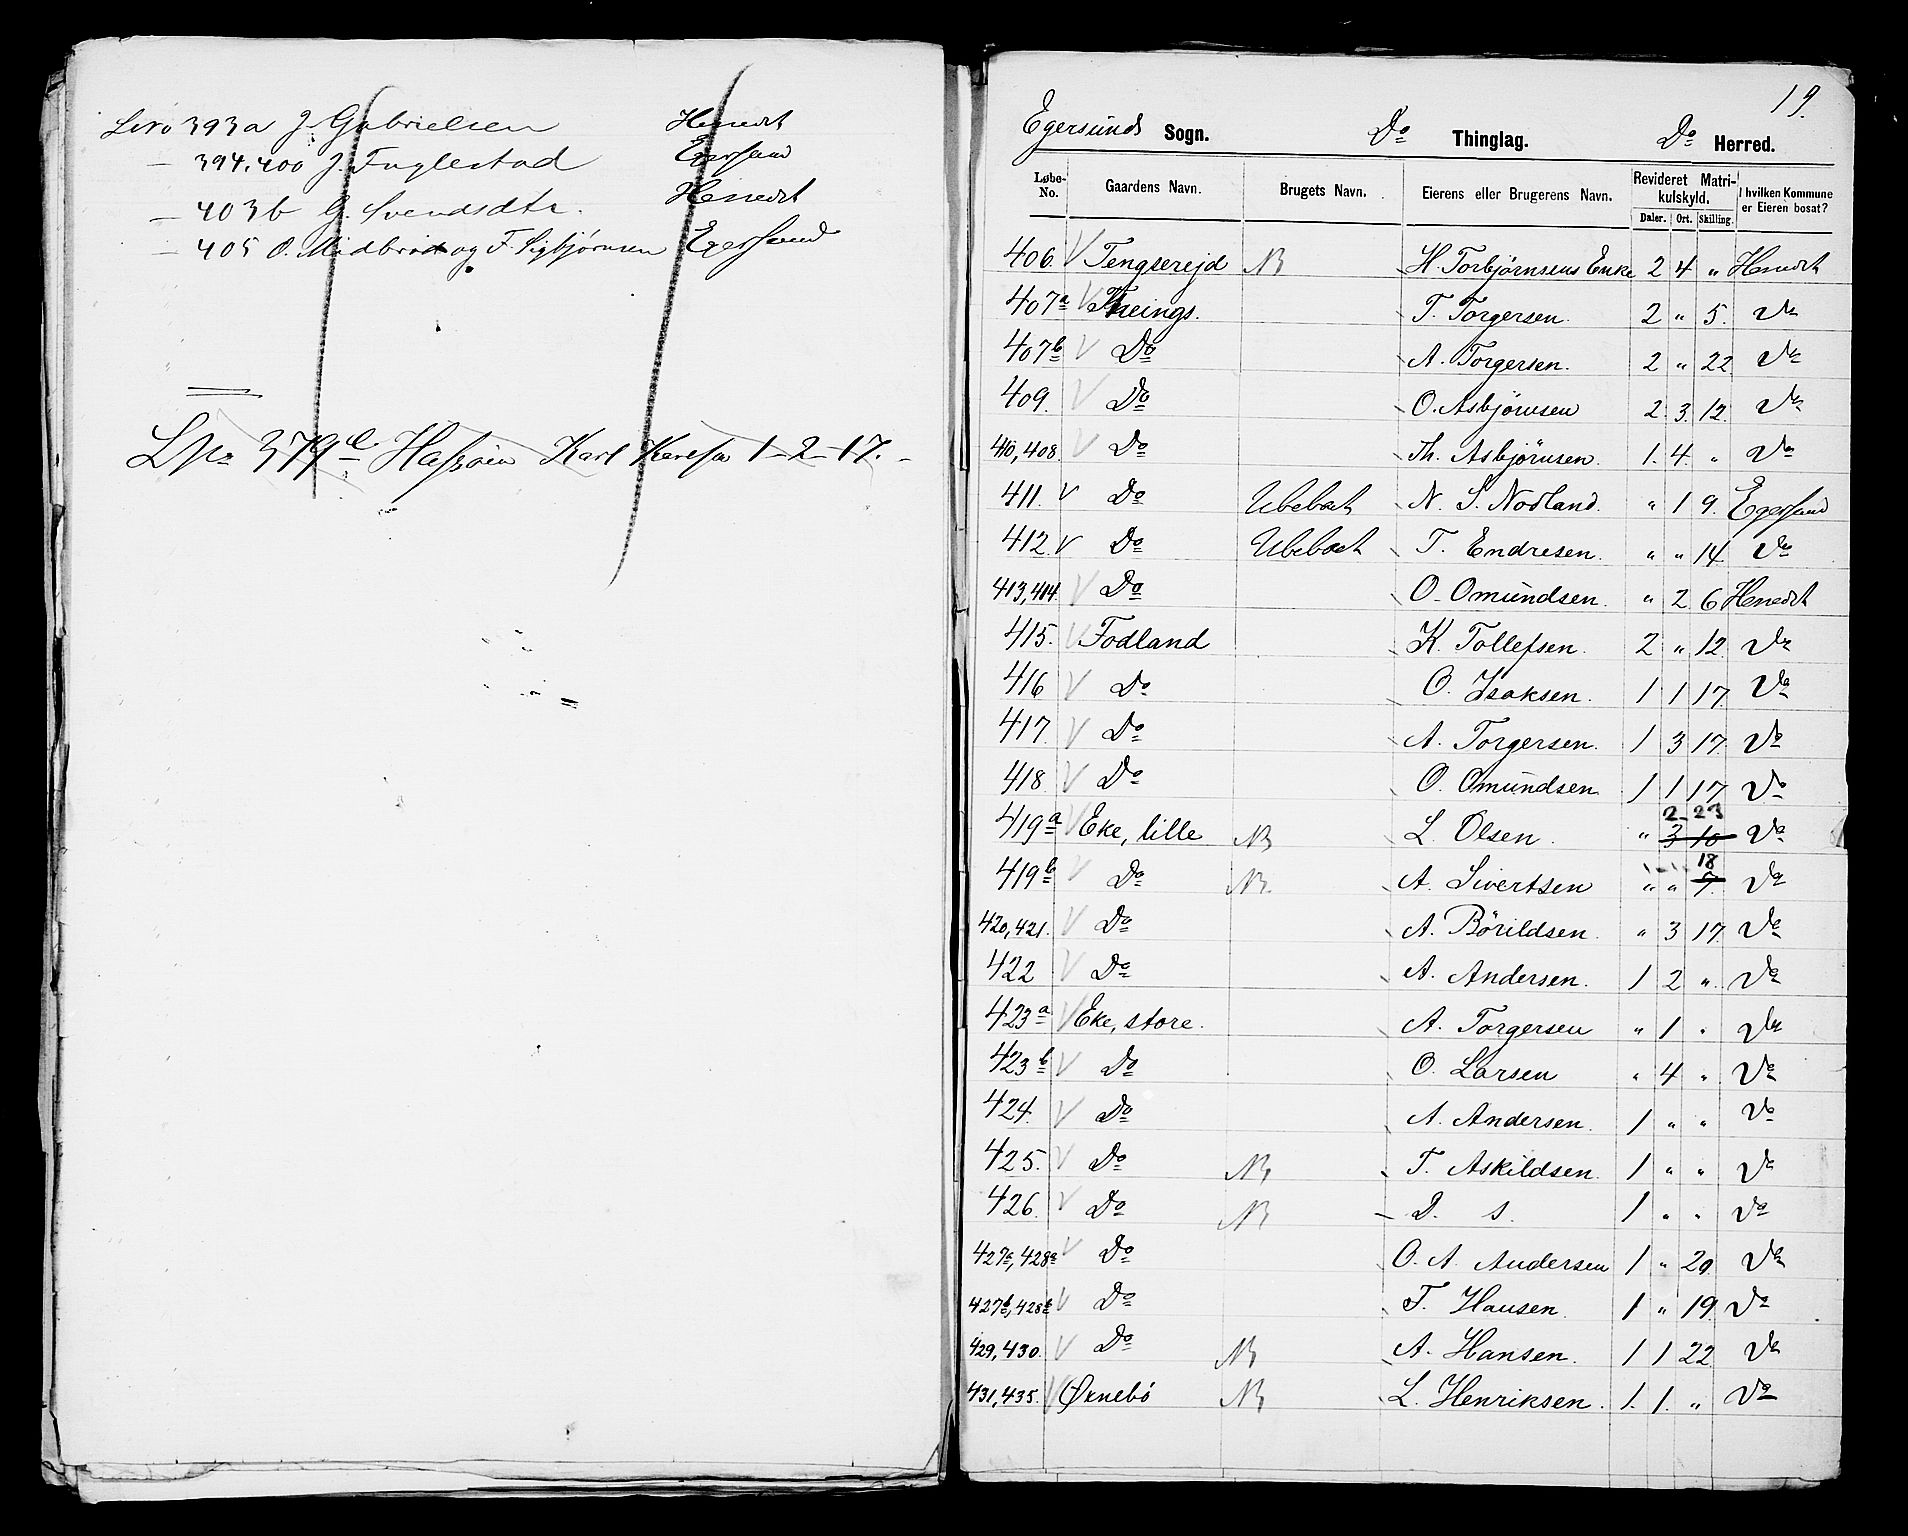 Livö 393a J. Gabrielsen Herredt
— 394,400 J. Fuglestad Egersund
— 403b G. Svendsdtr. Herredt
— 405 O. Midbröd og F. Sigbjørnsen Egersund
LNo 379e Hafsøen Karl Karlsen 1-2-17.
19.
Egersunds Sogn. Do Thinglag. Do Herred.
Løbe-No. Gaardens Navn. Brugets Navn. Eierens eller Brugerens Navn. Revideret Matrikulskyld. I hvilken Kommune er Eieren bosat?
Daler. Ort. Skilling.
406. V Tengsereid NB H. Torbjørnsens Enke 2 4 „ Herredt
407a V Theings. T. Torgersen. 2 „ 5. Do
407b V Do A. Torgersen. 2 „ 22 Do
409. V Do O. Asbjørnsen 2. 3. 12. Do
410, 408. V Do Th. Asbjørnsen. 1. 4. „ Do
411. V Do Ubeboet N. S. Nodland. „ 1 9. Egersund
412 V Do Ubeboet T. Endresen. „ „ 14 Do
413, 414. V Do O. Omundsen. „ 2 6 Herredt
415. V Fodland K. Tollefsen. 2 „ 12. Do
416 V Do O. Isaksen. 1 1 17. Do
417. V Do A. Torgersen. 1 3 17. Do
418 V Do O. Omundsen 1 1 17. Do
2 23
419a V Eke, lille NB L. Olsen. „ 3 10 Do
18
419b V Do NB. A. Sivertsen „ „ 7. Do
420, 421. V Do A. Börildsen. „ 3 17. Do
422 V Do A. Andersen. 1 2 „ Do
423a V Eke, store. A. Torgersen „ 1 „ Do
423b V Do O. Larsen „ 4 „ Do
424. V Do A. Andersen. 1 „ „ Do
425. V Do NB T. Askildsen. 1 „ „ Do
426. V Do NB D. s. 1 „ „ Do
427a, 428a V Do O. A. Andersen 1 „ 20. Do
427b, 428b V Do T. Hansen. 1 „ 19. Do
429, 430. V Do NB A. Hansen. 1 1 22 Do
431, 435. V Ørnebö NB L. Henriksen. 1. 1. „ Do